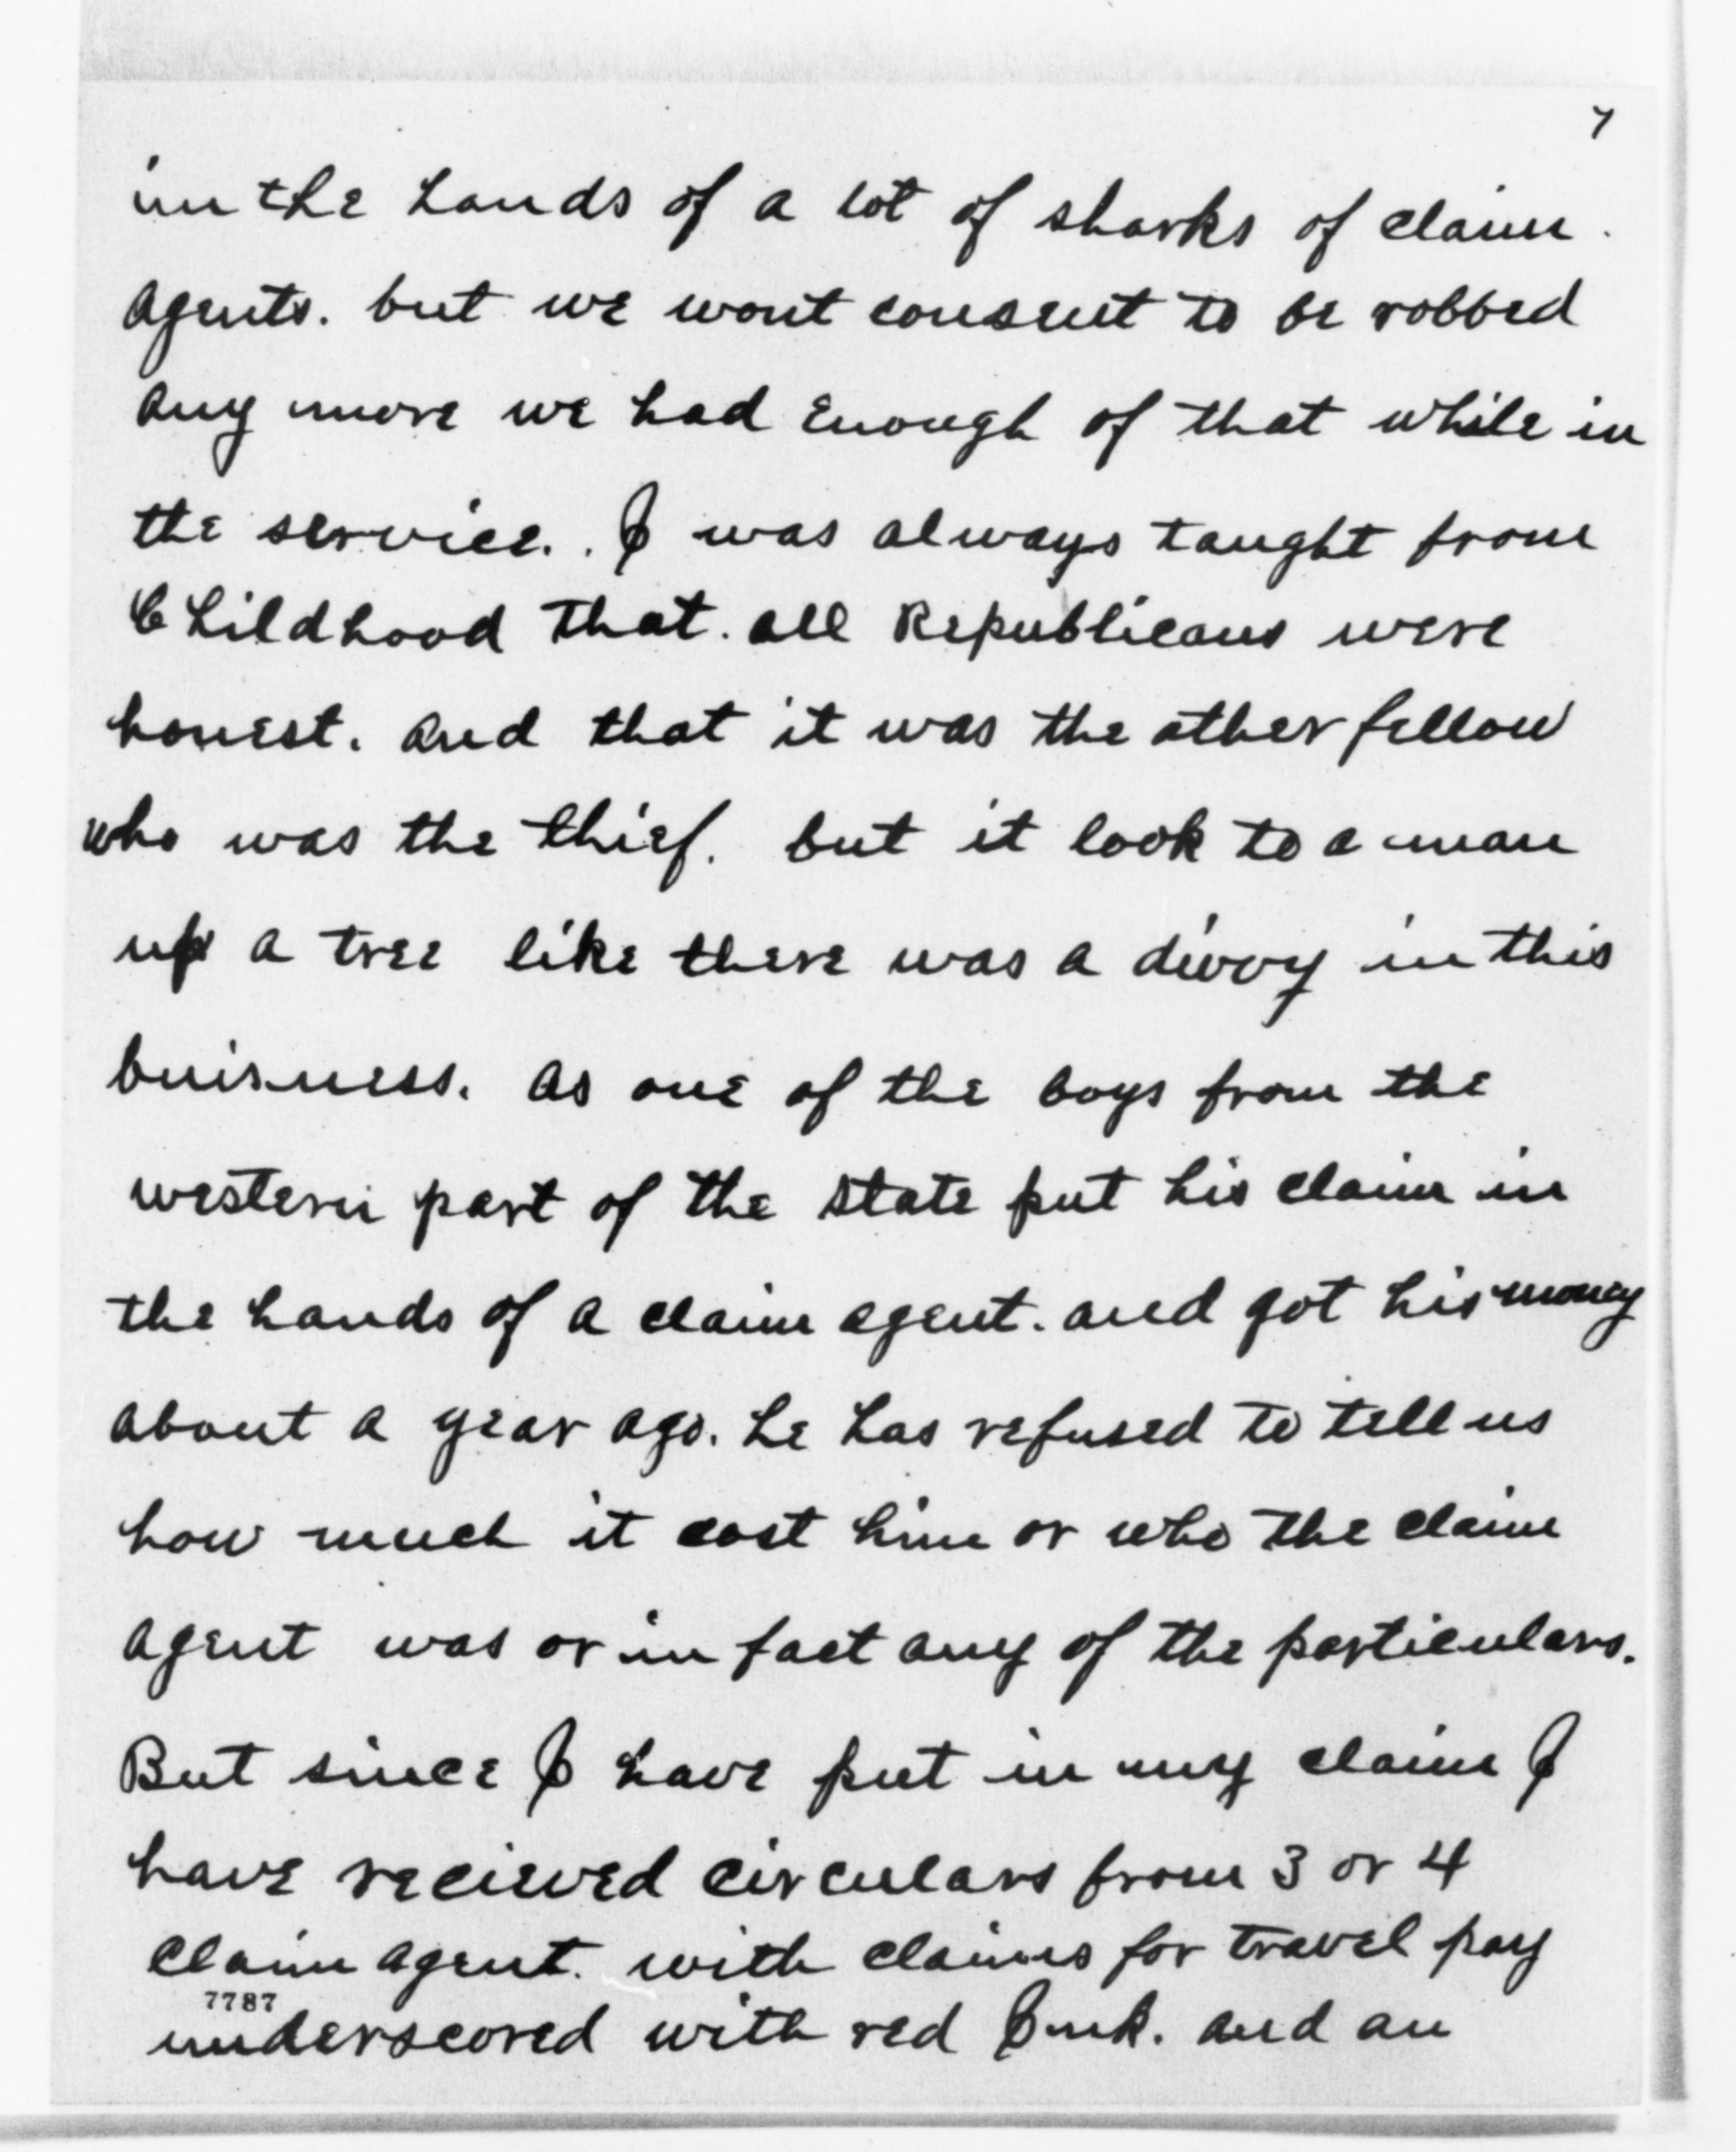 7
in the hands of a lot of sharks of claim.
agents. but we wont consent to be robbed
any more we had Enough of that while in
the service. . I was always taught from
Childhood that. all Republicans were
honest. and that it was the other fellow
who was the thief. but it look to a man
up a tree like there was a divvy in this
buisness. as one of the boys from the
western part of the state put his claim in
the hands of a claim agent. and got his money
about a year ago. he has refused to tell us
how much it cost him or who the claim
agent was or in fact any of the particulars.
But since I have put in my claim I
have recieved circulars from 3 or 4
claim agent. with claims for travel pay
7787
underscored with red Ink. and an